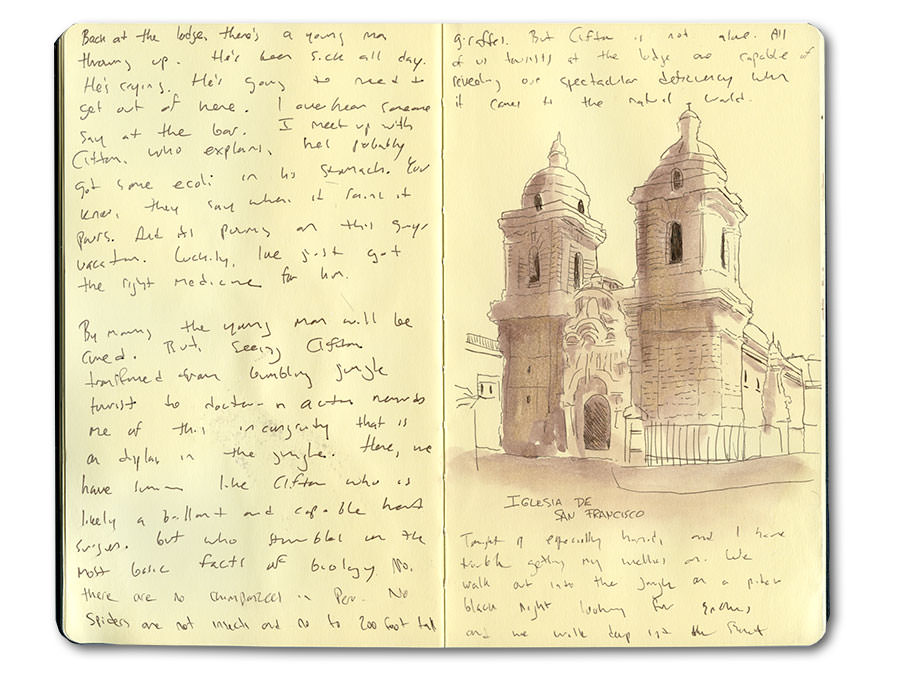 Back at the lodge, there's a young man
throwing up. He's been sick all day.
He's crying. He's going to need to
get out of here. I overhear someone
say at the bar. I meet up with
Clifton, who explains, he's probably
got some ecoli in his stomach. You
know, they say when it rains it
pours. And its pouring on this guys
vacation. Luckily, I've just got
the right medicine for him.
By morning the young man will be
cured. But, seeing Clifton
transformed from bumbling jungle
tourist to doctor in action reminds
me of this incongruity that is
on display in the jungle. Here, we
have someone like Clifton who is
likely a brilliant and capable heart
surgeon. but who stumbles on the
most basic facts of biology. No,
there are no chimpanzees in Peru. No
Spiders are not insects and no to 200 foot tall
giraffes. But Clifton is not alone. All
of us tourists at the lodge are capable of
revealing our spectacular deficiency when
it comes to the natural world.
IGLESIA DE
SAN FRANCISCO
Tonight is especially humid, and I have
trouble getting my wellies on. We
walk out into the jungle on a pitch
black night looking for
and we walk deep into the forest